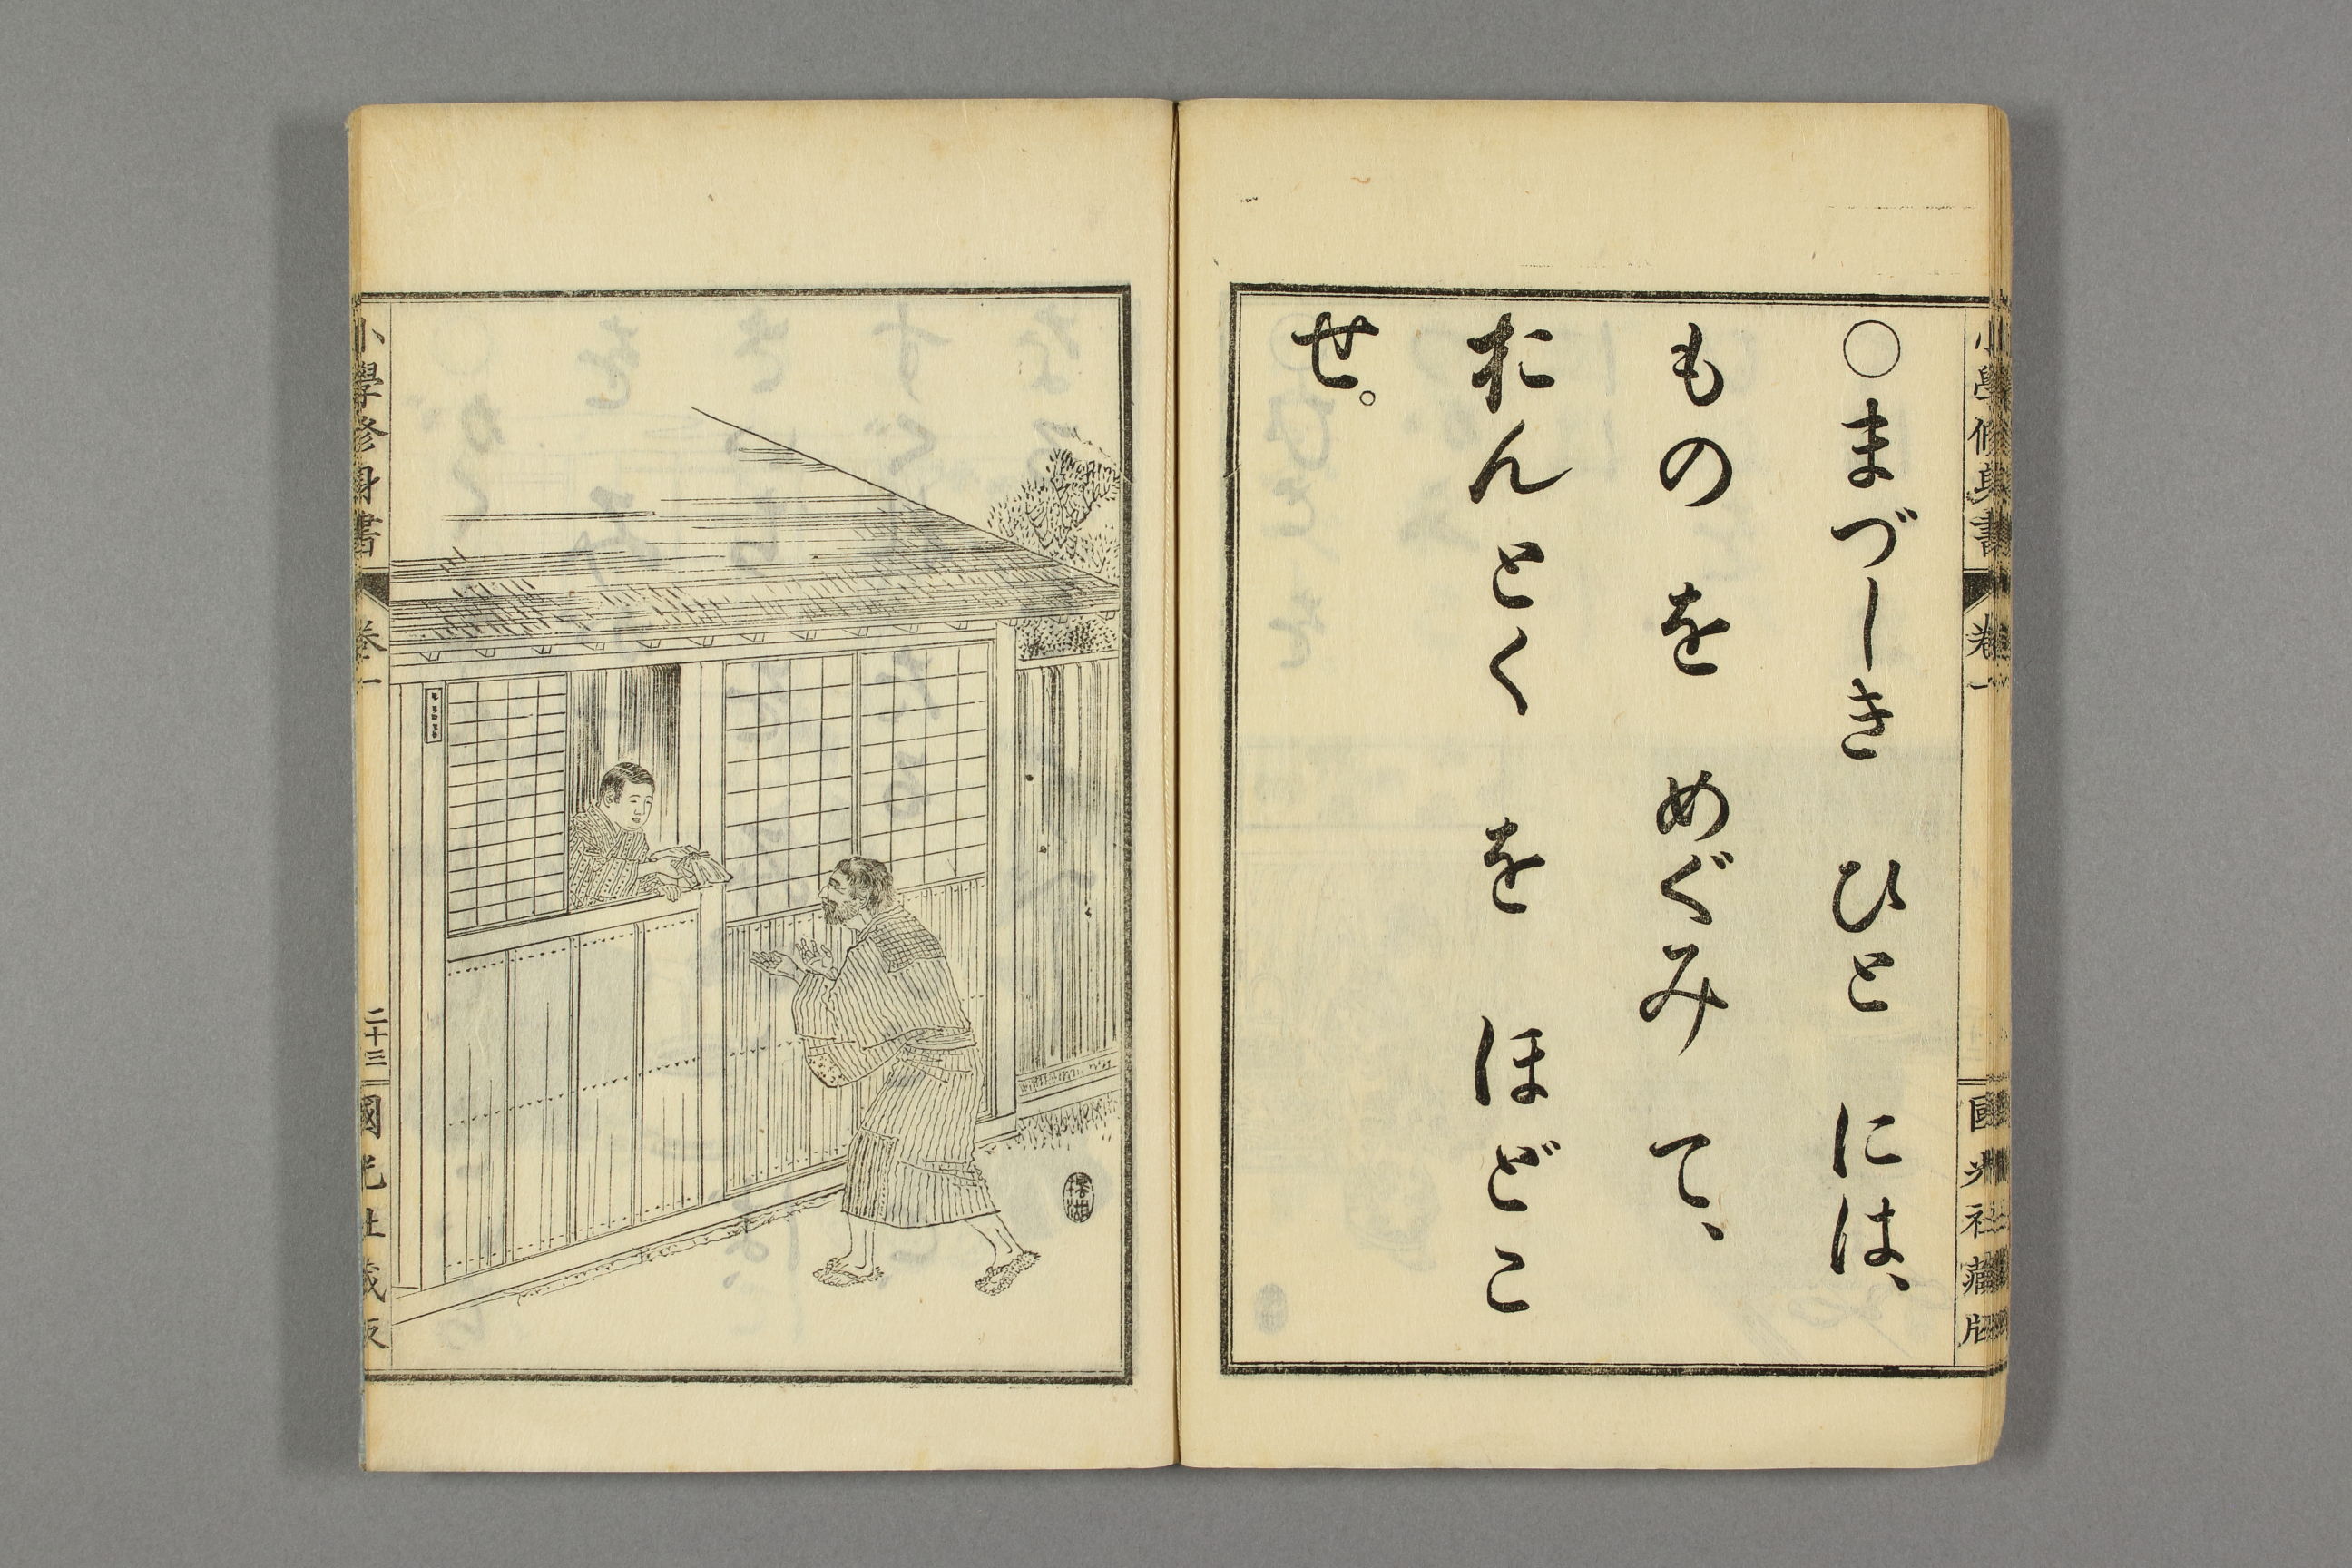 小學修身書 卷一 國光社藏版
○まづしき ひと には、
もの を めぐみ て、
おんとく を ほどこ
せ。
小學修身書 卷一 二十三 國光社藏版